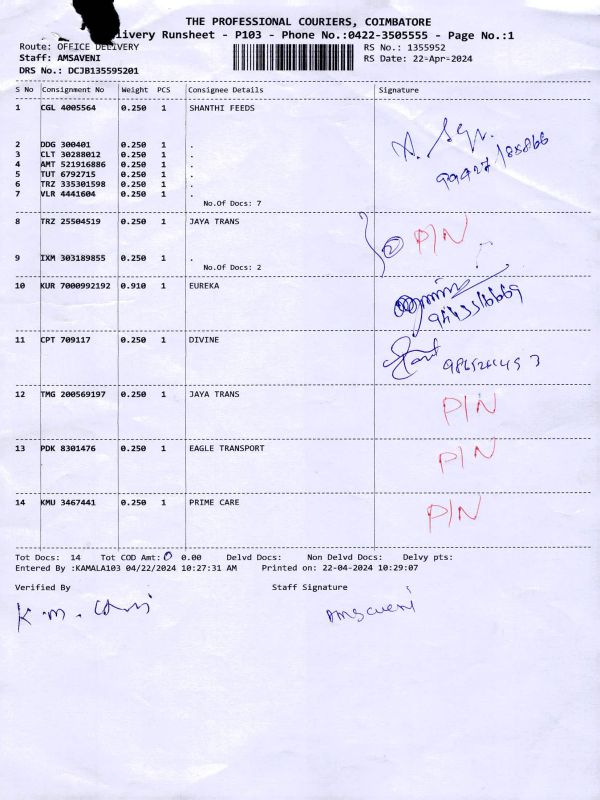 THE PROFESSIONAL COURIERS, COIMBATORE
livery Runsheet - P103 - Phone No.:0422-3505555 - Page No.:1
Route: OFFICE DELIVERY RS No.: 1355952
Staff: AMSAVENI RS Date: 22-Apr-2024
DRS No.: DCJB135595201
S No Consignment No Weight PCS Consignee Details Signature
1 CGL 4005564 0.250 1 SHANTHI FEEDS
2 DDG 300401 0.250 1 .
3 CLT 30288012 0.250 1 .
4 AMT 521916886 0.250 1 .
5 TUT 6792715 0.250 1 .
6 TRZ 335301598 0.250 1 .
7 VLR 4441604 0.250 1 .
No.Of Docs: 7
8 TRZ 25504519 0.250 1 JAYA TRANS
② PIN
9 IXM 303189855 0.250 1 .
No.Of Docs: 2
10 KUR 7000992192 0.910 1 EUREKA
11 CPT 709117 0.250 1 DIVINE
12 TMG 200569197 0.250 1 JAYA TRANS
PIN
13 PDK 8301476 0.250 1 EAGLE TRANSPORT
PIN
14 KMU 3467441 0.250 1 PRIME CARE
PIN
Tot Docs: 14 Tot COD Amt: 0 0.00 Delvd Docs: Non Delvd Docs: Delvy pts:
Entered By :KAMALA103 04/22/2024 10:27:31 AM Printed on: 22-04-2024 10:29:07
Verified By Staff Signature
K.m. Amsaveni